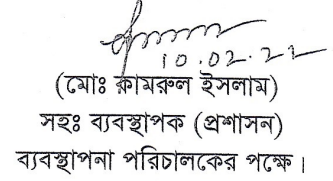 10.02.22
(মোঃ কামরুল ইসলাম)
সহঃ ব্যবস্থাপক (প্রশাসন)
ব্যবস্থাপনা পরিচালকের পক্ষে।